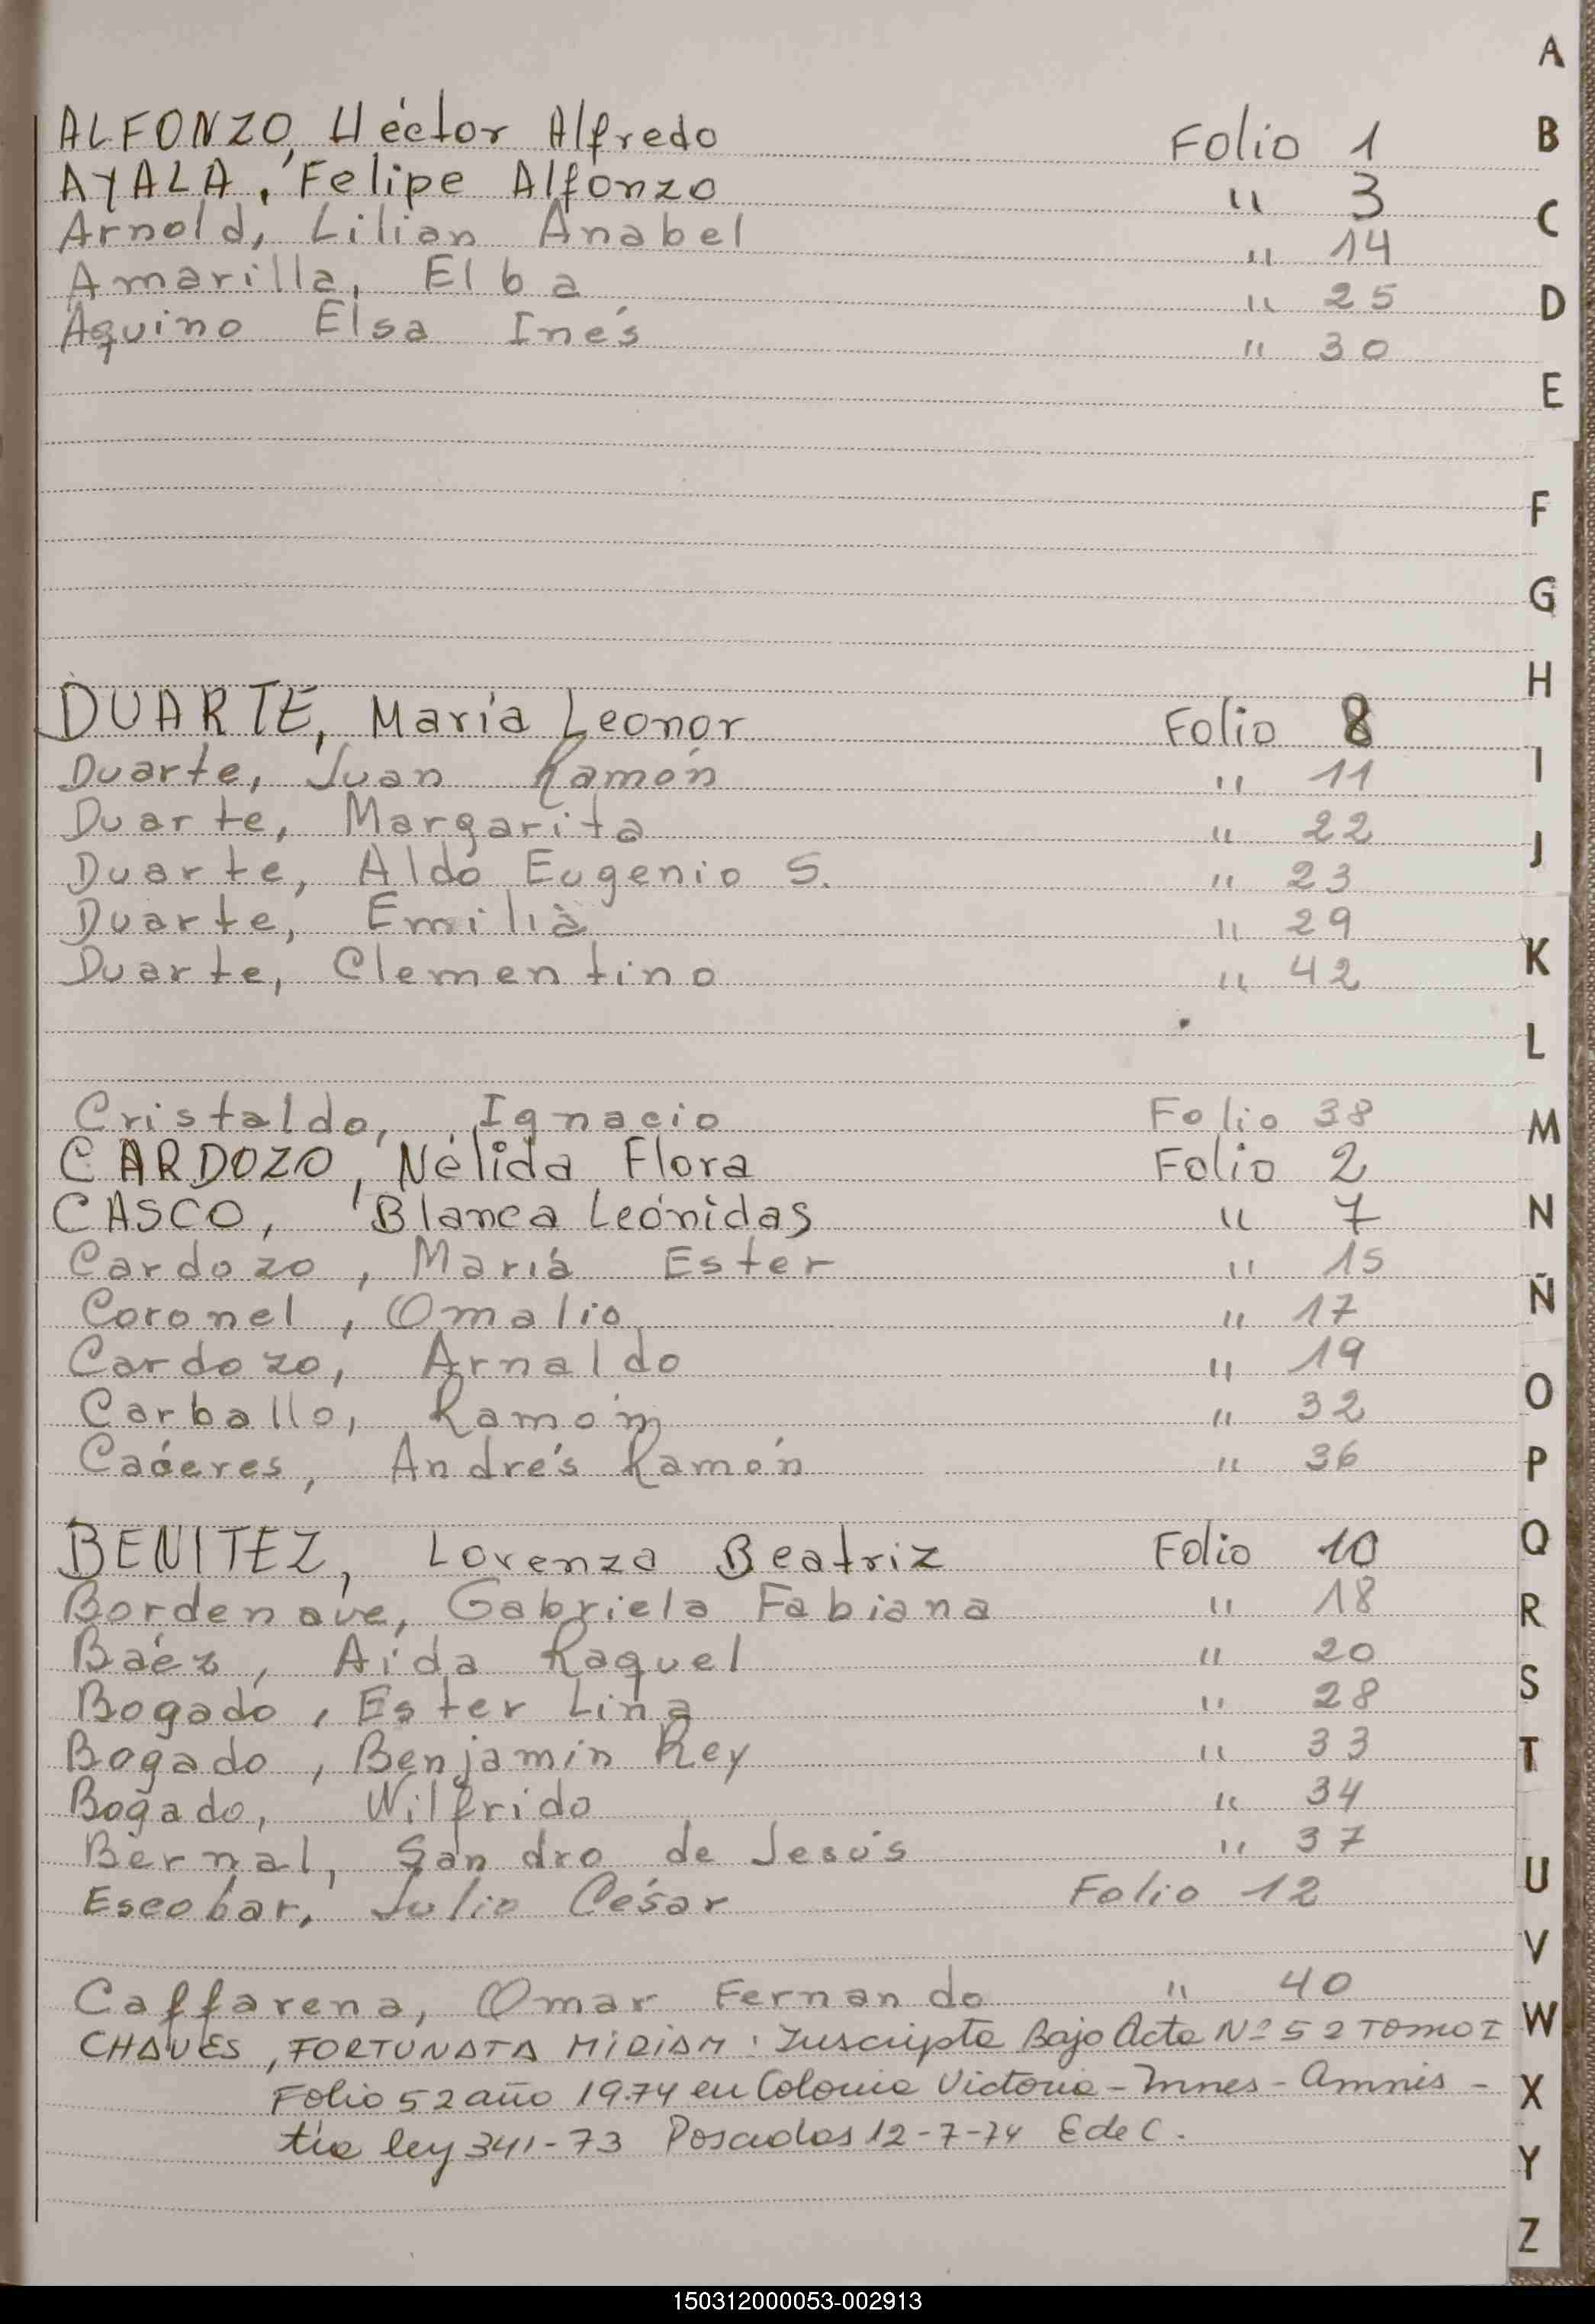 ALFONZO, Héctor Alfredo Folio 1
AYALA, Felipe Alfonzo " 3
Arnold, Lilian Anabel " 14
Amarilla, Elba " 25
Aquino Elsa Inés " 30
DUARTE, María Leonor Folio 8
Duarte, Juan Ramón " 11
Duarte, Margarita " 22
Duarte, Aldo Eugenio S. " 23
Duarte, Emilia " 29
Duarte, Clementino " 42
Cristaldo, Ignacio Folio 38
CARDOZO, Nélida Flora Folio 2
CASCO, Blanca Leónidas " 7
Cardozo, María Ester " 15
Coronel, Omalio " 17
Cardozo, Arnaldo " 19
Carballo, Ramón " 32
Cáceres, Andrés Ramón " 36
BENITEZ, Lorenza Beatriz Folio 10
Bordenave, Gabriela Fabiana " 18
Báez, Aída Raquel " 20
Bogado, Ester Lina " 28
Bogado, Benjamín Rey " 33
Bogado, Wilfrido " 34
Bernal, Sandro de Jesús " 37
Escobar, Julio César Folio 12
Caffarena, Omar Fernando " 40
CHAVES, FORTUNATA MIRIAM: Inscripta Bajo Acta Nº 52 TOMO I
Folio 52 año 1974 en Colonia Victoria - Mnes - Amnis -
tía ley 341-73 Posadas 12-7-74 E de C.
A
B
C
D
E
F
G
H
I
J
K
L
M
N
Ñ
O
P
Q
R
S
T
U
V
W
X
Y
Z
150312000053-002913